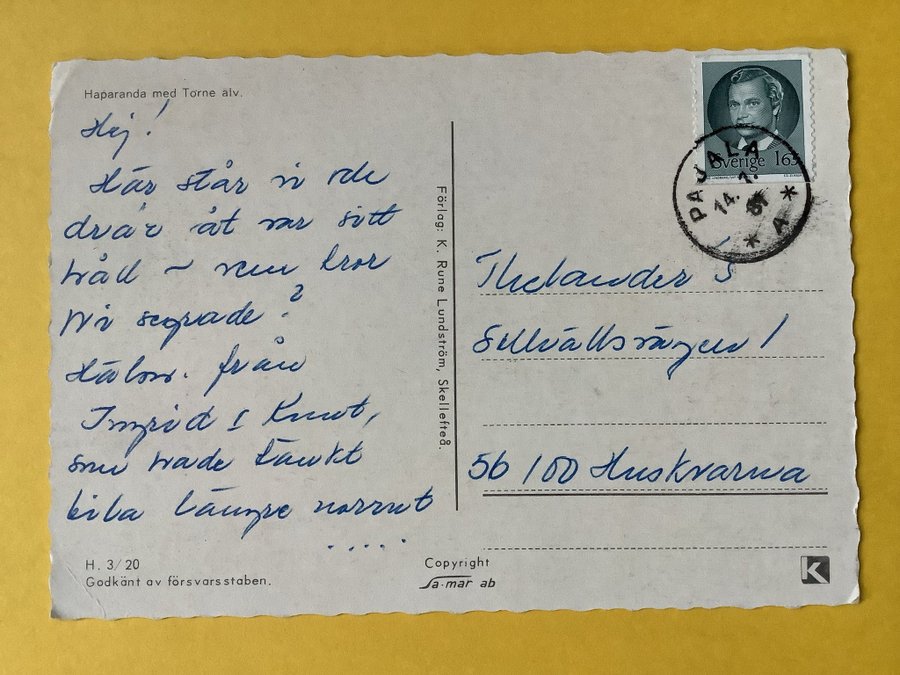 Haparanda med Torne älv.
Hej!
Här står vi och
drar åt var sitt
håll – vem tror
Ni segrade?
Hälsn. från
Ingrid & Knut,
som hade tänkt
bila längre norrut
.....
H. 3/20
Godkänt av försvarsstaben.
Förlag: K. Rune Lundström, Skellefteå.
Copyright
Sa-mar ab
Sverige 165
PAJALA
14. 7.
81
* A *
Thelander S
1
56100 Huskvarna
K